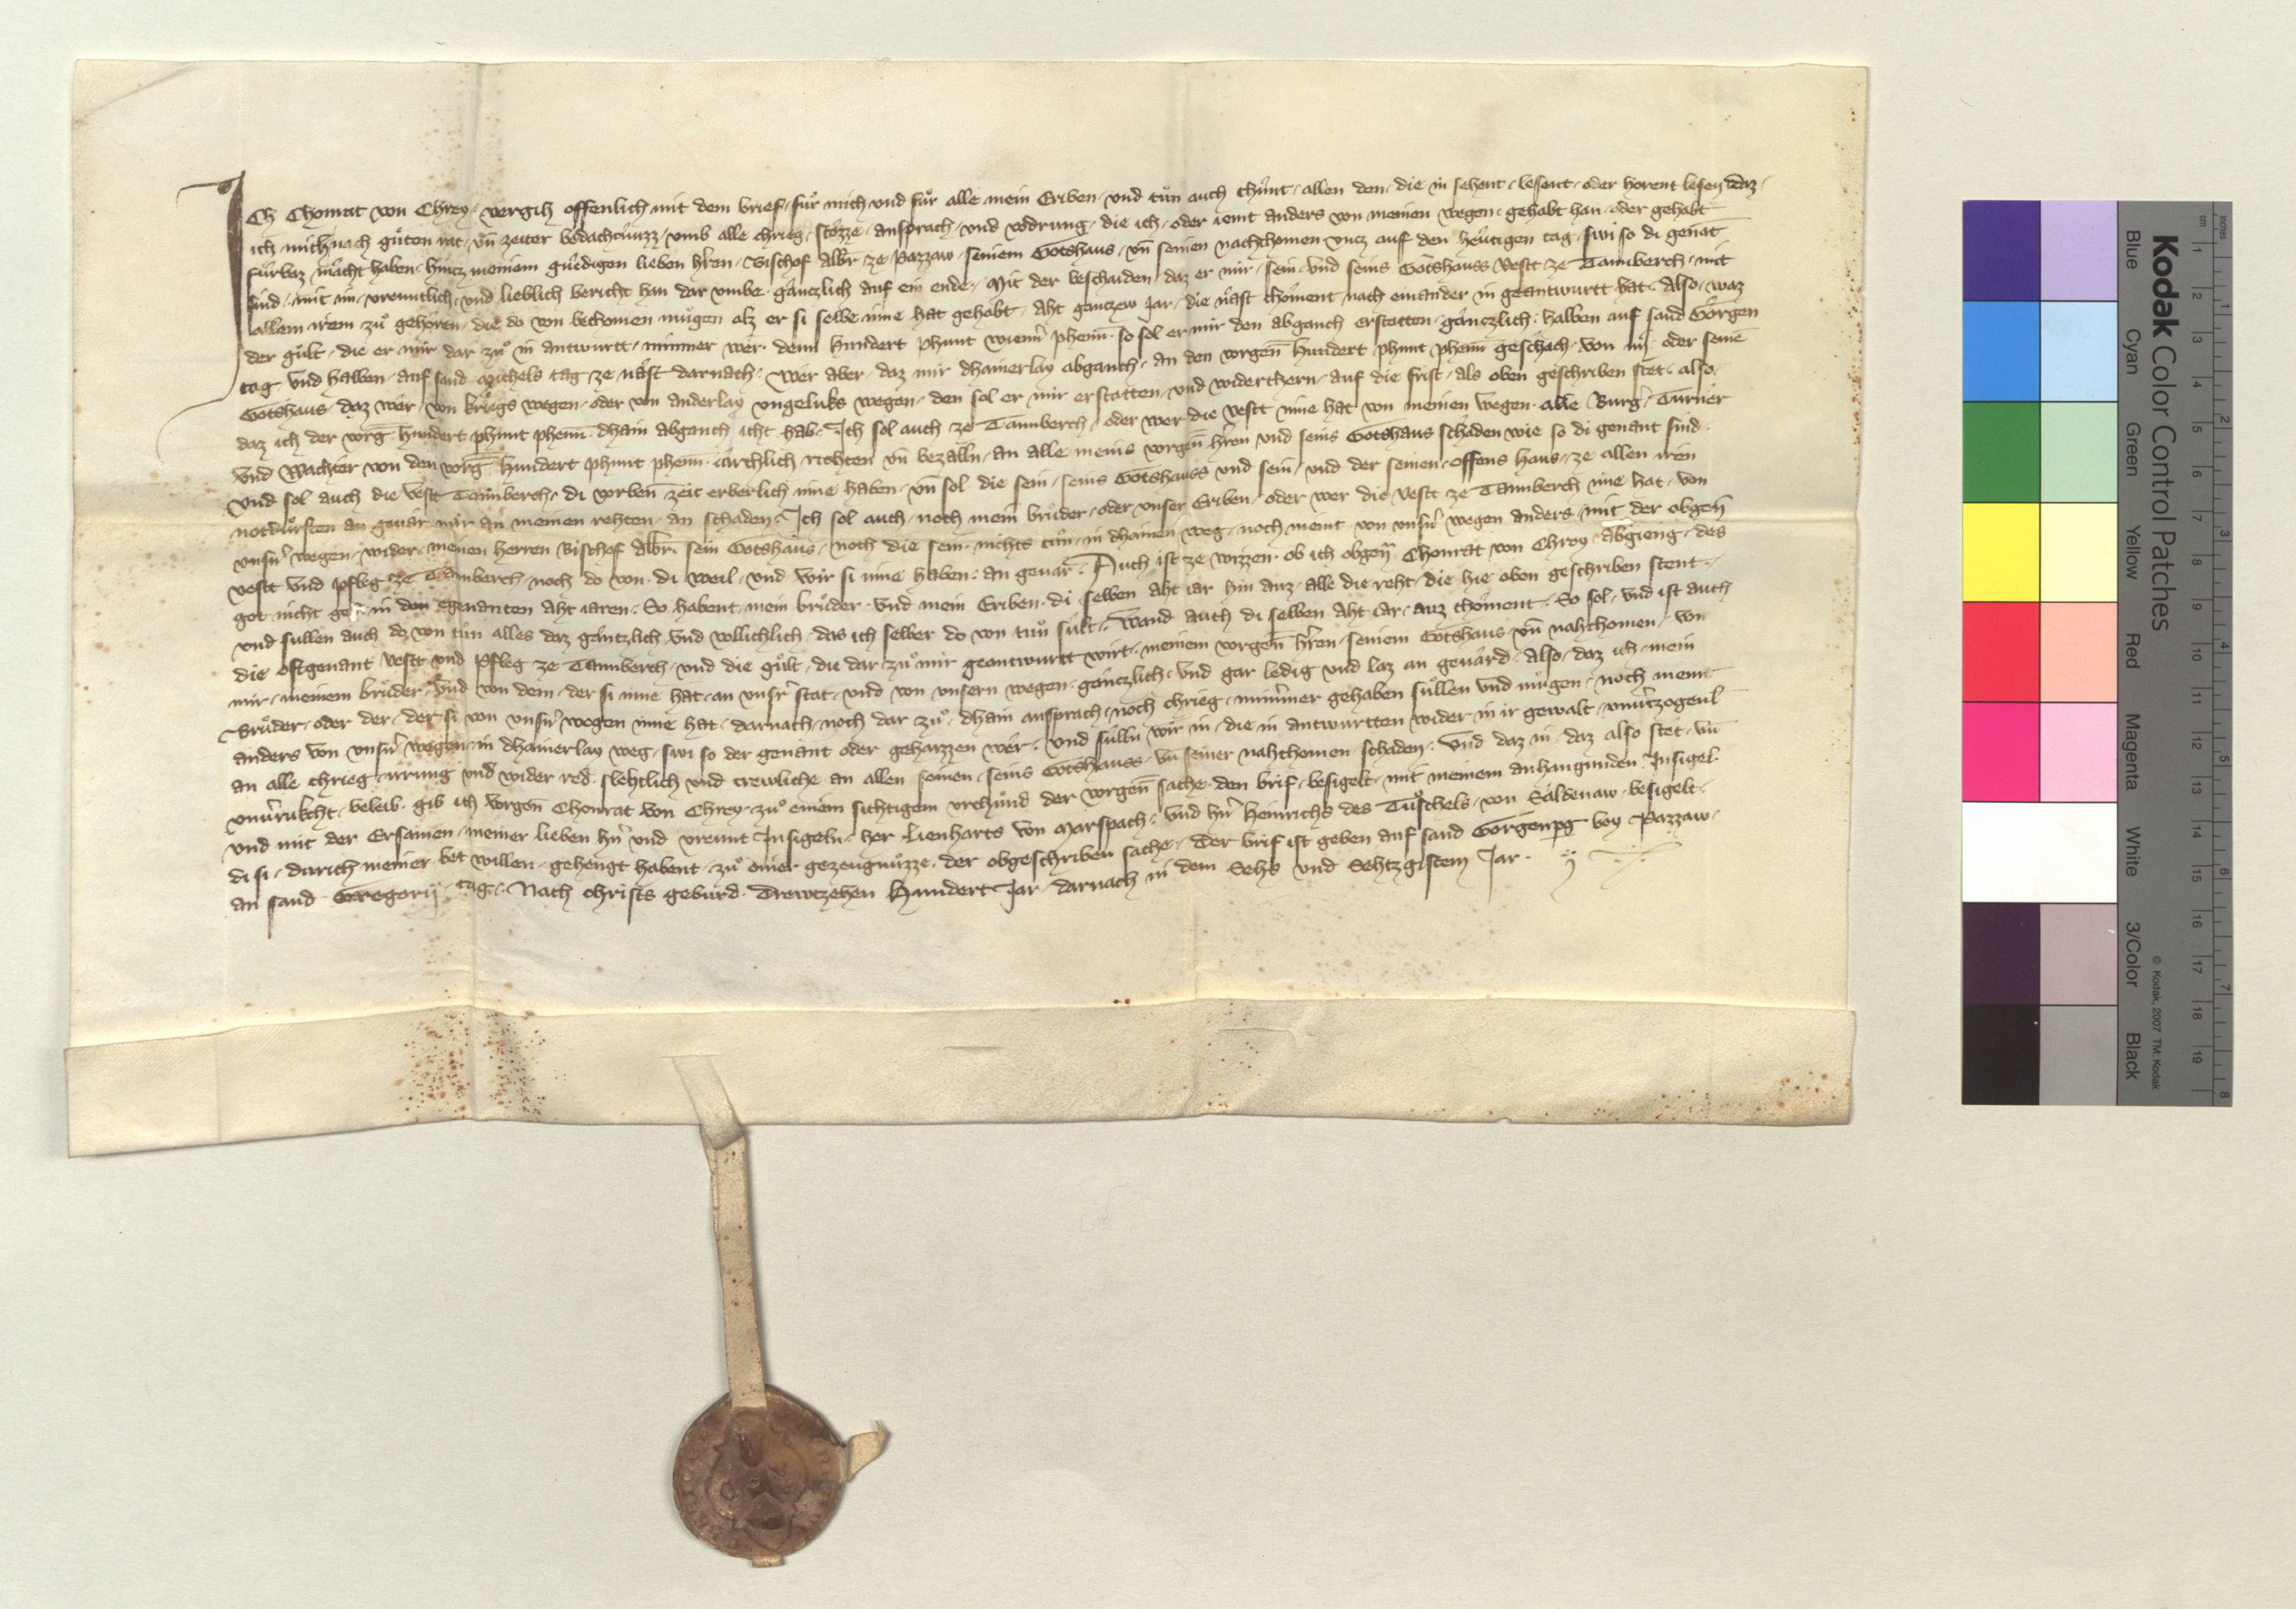 Ich Chonrat von Chrey, vergih offenlich mit dem brief, fuͤr mich und fuͤr alle mein Eriben, und tuͤn auch chuͤnt, allen den, die in sehent, lesent, oder horent lesen, daz,
ich mich nach guͤten rat, vn̄ zeiter bedachtnuzz, umb alle chrieg, stoͤzze, ansprach, und vodrung, die ich, oder iemt anders von meinen wegen, gehabt han, oder gehabt
fuͤrbaz maͤcht haben, hincz meinem gnedigen lieben hr̄en, Bischof Albr̄ ze Pazzaw, seinem Gotshaus, vn̄ seinen nachchomen, uncz auf den heutigen tag, swi so di genāt
sind, mit im, vreuntlich, und lieblich bericht han dar umbe, gaͤnczlich auf ein ende, Mit der beschaiden, daz er mir, sein, und seins Gotshauss Vestt ze Tannberch, mit
allem irem zuͤ gehoren, die do von bechomen muͤgen alz er si selbe inne hat gehabt, Aht ganczew Jar, die naͤst choment nach einander in geantwurtt hat. Also, waz
der guͤlt, die er mir dar zuͤ in antwurtt, minner wer, denn Hundert phunt wienn̄ phenn̄, so sol er mir den abganch erstatten, gaͤnczlich, halben auf sand Goͤrgen
tag und halben, auf sand Michels tag, ze naͤst darnach. Wer aber, daz mir dhainerlay abganch, an den vorgen̄ Hundert phunt phenn̄ geschaͤch, von im, oder seinē
Gotshaus, daz wer, von kriegs wegen, oder von anderlay ungeluks wegen, den sol er mir erstatten, und widerchern, auf die frist, als oben geschriben stet, also,
daz ich der vorḡ hundert phunt phenn̄ dhain abganch icht hab. Ich sol auch ze Tannberch, oder wer die vestt inne hat von meinen wegen, alle Burḡ, Turner
und Wachter von den vorḡ hundert phunt phenn̄, iaͤrchlich richten vn̄ bezalln, an alle meins vorgen̄ hr̄en und seins Gotshaus schaden wie so di genant sind.
Und sol auch die vestt Tannberch, di vorben̄ zeit erberlich inne haben, vn̄ sol die sein, seins Gotshauss und sein, und der seinen, offens haus, ze allen iren
notduͤrften an geuaͤr, mir an meinen rehten, an schaden. Ich sol auch, noch mein bruͤder, oder unser Eriben, oder wer die vestt ze Tannberch inne hat, von
unsn̄ wegen, wider, meinen herren Bischof Albr̄, sein Gotshaus, noch die sein, nichts tuͤn, in dhainen weg, noch niemt von unsn̄ wegen anders, mit der obgen̄
vestt und pfleg ze Tannberch, noch do von, di weil, und wir si inne haben, an geuaͤr. Auch ist ze wizzen, ob ich obgen̄ Chonrat von Chrey, abgieng, des
got nicht geb, in den egenanten aht iaren, So habent mein bruͤder, und mein Eriben, di selben aht iar hin auz, alle die reht, die hie oben geschriben stent,
und sullen auch do von tuͤn alles daz gaͤntzlich und vollichlich, das ich selber do von tuͤn suͤlt. Wand auch di selben aht iar, auz choment, So sol, und ist auch
die oftgenant vestt und pfleg ze Tannberch, und die guͤlt, du dar zuͤ mir geantwurtt wirt, meinem vorgen̄ hr̄en, seinem Gotshaus, vn̄ nahchomen, von
mir, meinem bruͤder, und von dem, der si inne hat, an unsr̄ stat, und von unsern wegen, gaͤnczlich, und gar ledig und laz an geuaͤrd, Also, daz ich, mein
Bruͤder, oder der, der si von unsn̄ wegen inne hat, darnach, noch dar zuͤ, dhain ansprach, noch chrieg, nimmer gehaben suͤllen und muͤgen, noch niemt
anders von unsn̄ wegen, in dhainerlay weg, swi so der genant oder gehaizzen wer. Und suͤlln wir in, die in antwurtten wider in ir gewalt, unuerzogenl
an alle chrieg, irrung und wider red, slehtlich und trewliche an allen seinen, seins Gotshauss, vn̄ seiner nahchomen schaden. Und daz in, daz also stet, vn̄
unuerrukcht, beleib, gib ich vorgen̄ Chonrat von Chrey, zuͤ einem sichtigem urchuͤnd der vorgen̄ sache, den brif, besigelt, mit meinem anhangunden Insigel.
und mit der Ersamen, meiner lieben hn̄ und vreunt Insigeln, her Lienharts von Marspach, und hn̄ Heinrichs des Tuͤschels, von Saͤldenaw, besigelt,
di si, durich meiner bet willen, gehengt habent, zuͤ einer gezeugnuͤzze, der obgeschriben sache. Der brif ist geben auf sand Goͤrgenpg bey Pazzaw,
an sand Gregorij, tag, Nach christs geburd, Drewtzehen Hundert Jar, darnach in dem Sehs und Sehtzgistem Jar.
Kodak Color Control Patches
© Kodak, 2007 TM: Kodak
Blue Cyan Green Yellow Red Magenta White 3/Color Black
cm 1 2 3 4 5 6 7 8 9 10 11 12 13 14 15 16 17 18 19
inches 1 2 3 4 5 6 7 8